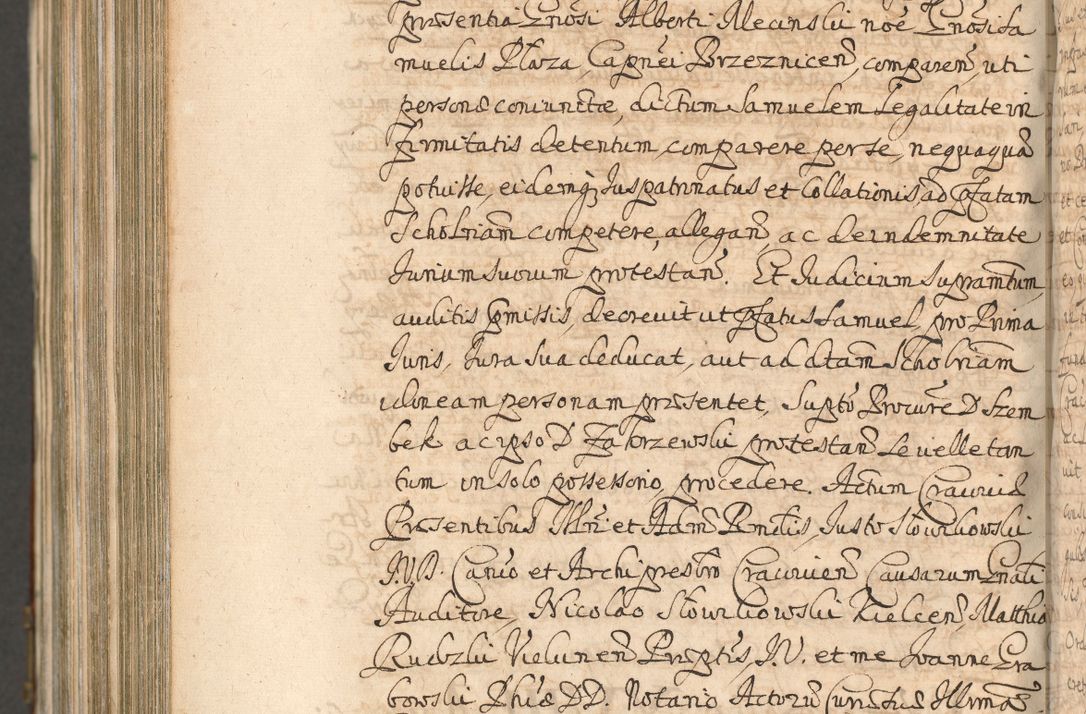 præsentia Gnosi Alberti Mecinski noe Gnosi Sa
muelis Płaza, Capnei Brzeznicen, comparen, uti
personæ coniunctæ, dictum Samuelem Legalitate in
firmitatis detentum, comparere per se, nequaquã
potuisse, eidemq Juspatronatus et Collationis ad pfatam
Scholriam competere, allegan, ac de indemnitate
Jurium suorum protestan. Et Judicium supramtum,
auditis pmissis, decrevit ut pfatus Samuel, pro Prima
Juris, Jura sua deducat, aut ad dtam Scholriam
idoneam personam præsentet, supto Procure D Szem
bek ac ipso D Zakrzewski protestan se uelle tan
tum in solo possessorio, procedere. Actum Cracoviæ
Præsentibus Illri et Adm Rndis, Justo Słowikowski
J.V.D. Canco et Archipresbro Cracovien Causarum Gnali
Auditore, Nicolao Słowikowski Kielcen, Matthia
Rudzki Vielunen Præptis, J.V. et me Joanne Gra
bowski Phiæ DD. Notario Actorũ Curiæ Suæ Illrimæ